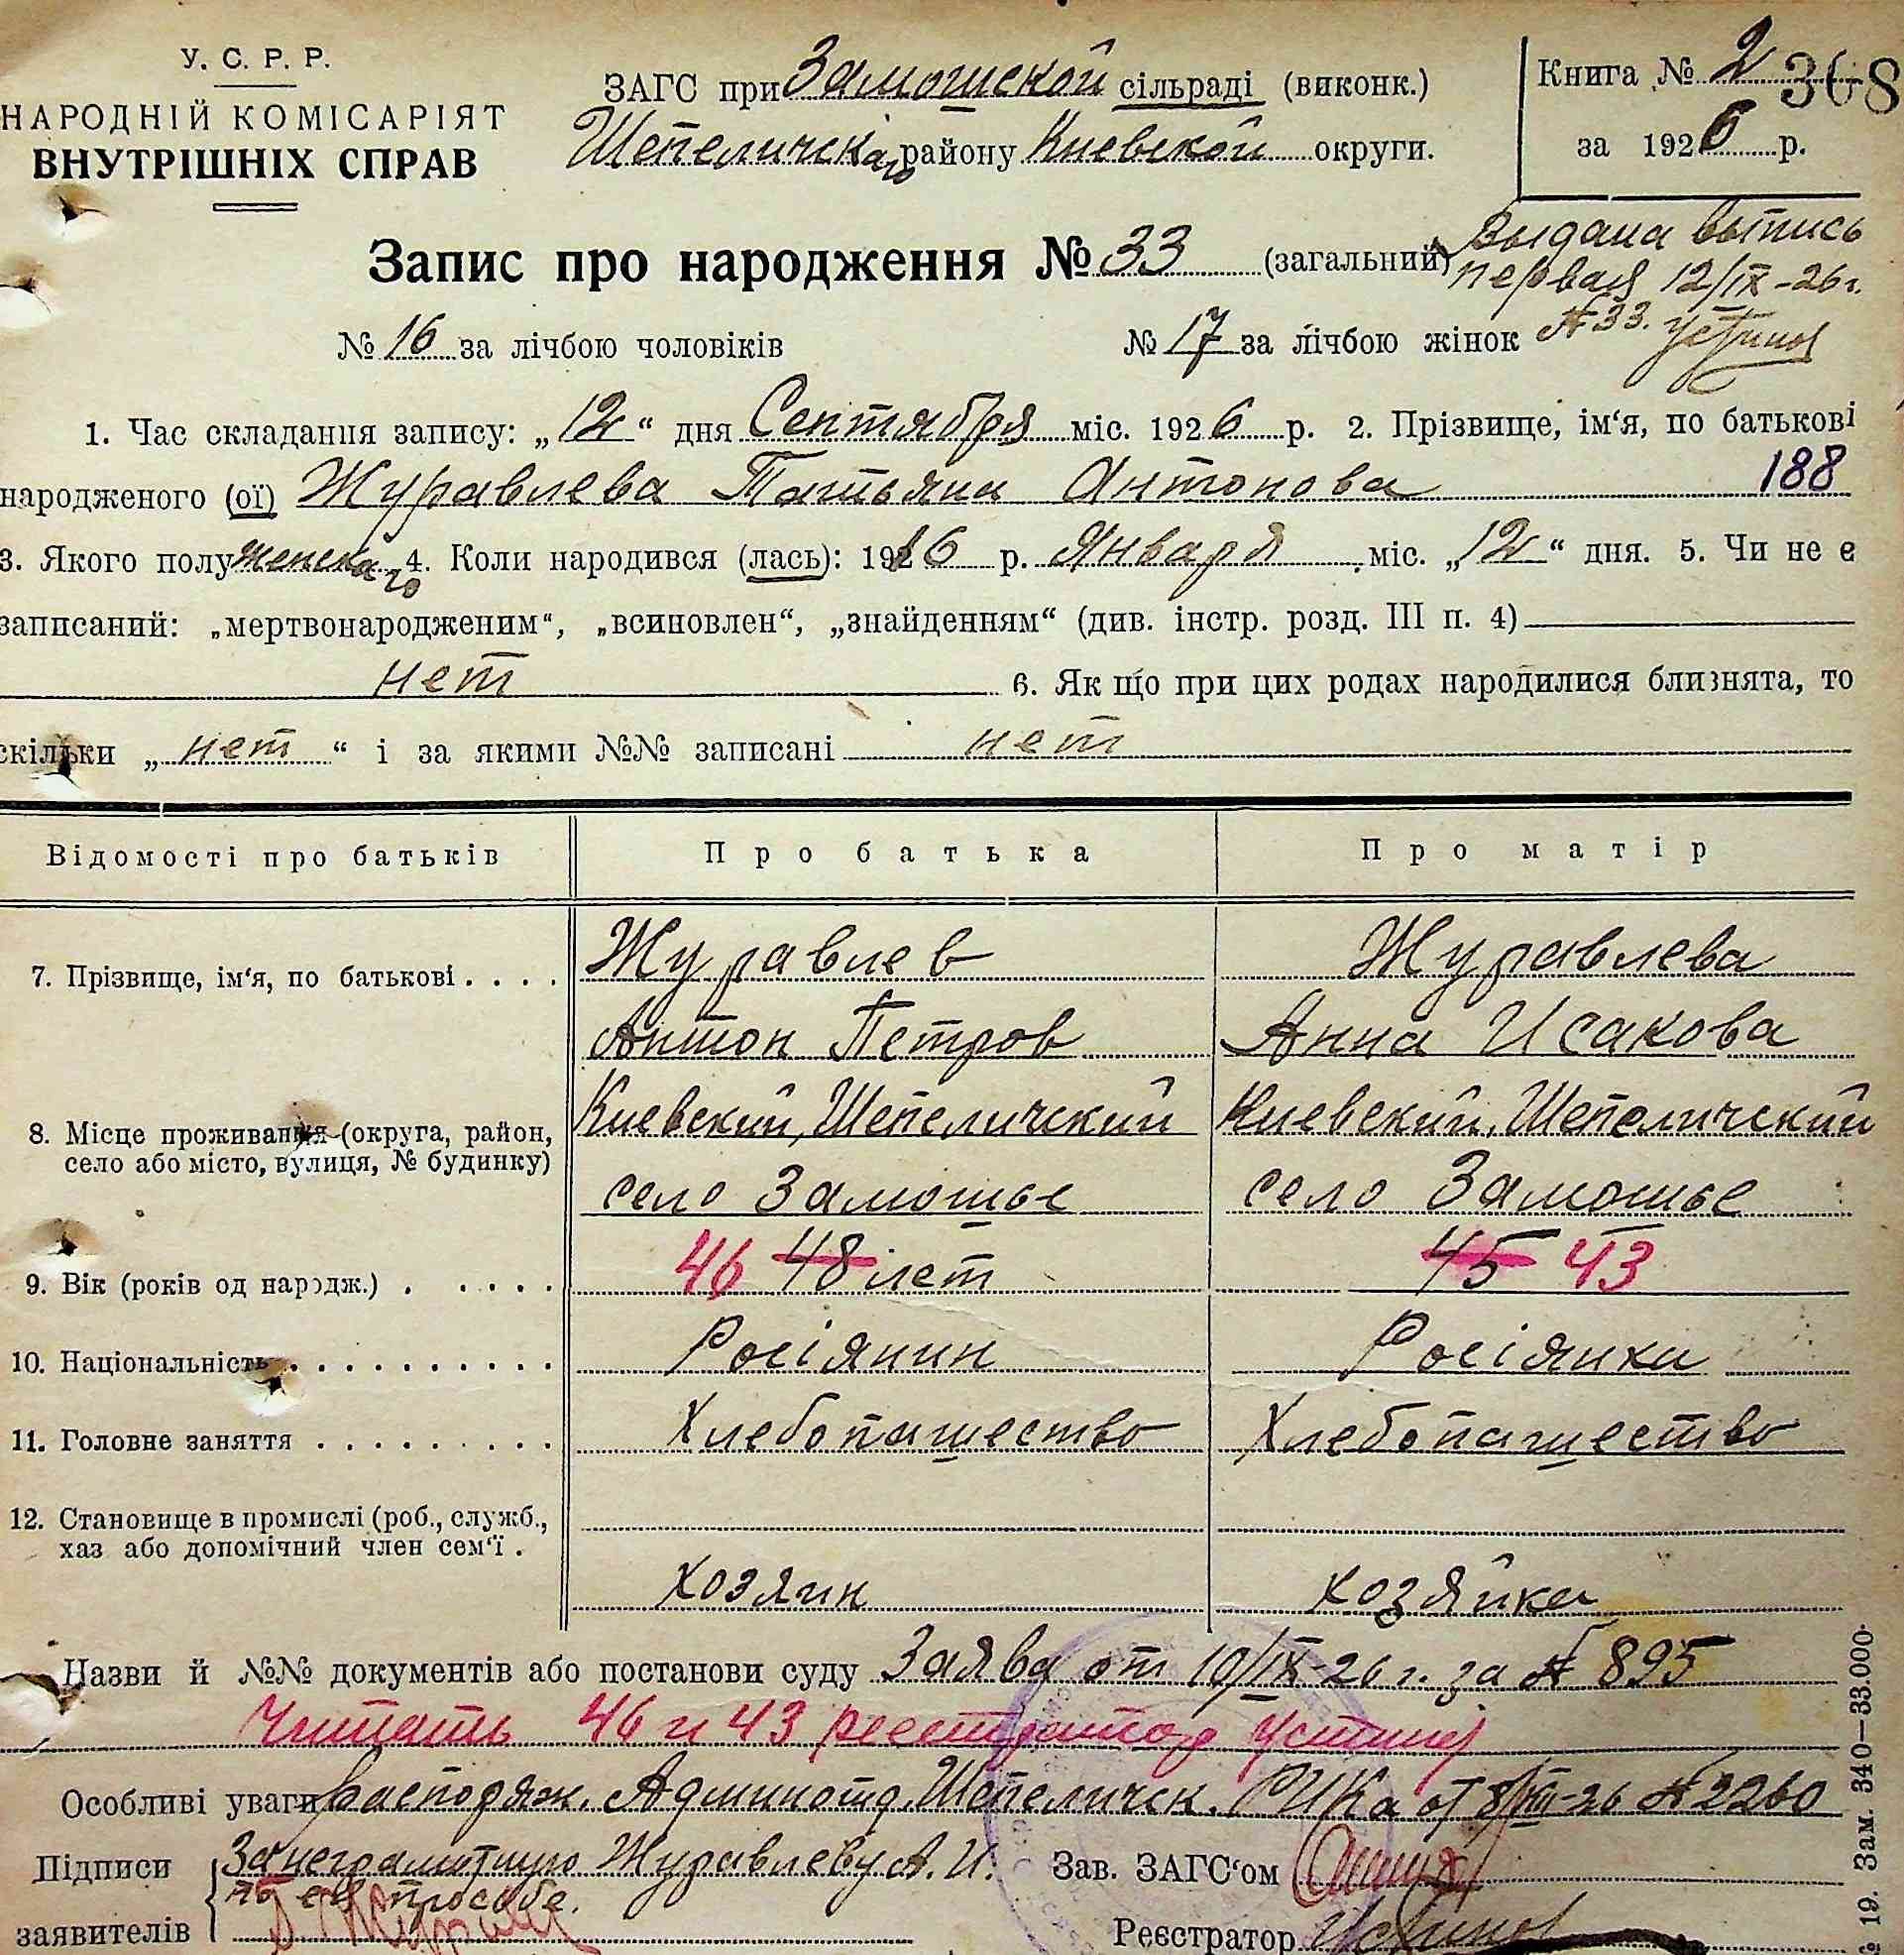 У. С. Р. Р.
НАРОДНІЙ КОМІСАРІЯТ
ВНУТРІШНІХ СПРАВ
ЗАГС при Замошской сільраді (виконк.)
Шепеличскаго району Киевской округи.
Книга № 2 368
за 1926 р.
Запис про народження № 33 (загальний)
Выдана выпись
первая 12/IX-26 г.
№ 33. Устинов
№ 16 за лічбою чоловіків № 17 за лічбою жінок
1. Час складання запису: „12“ дня Сентября міс. 1926 р. 2. Прізвище, ім‘я, по батькові
народженого (ої) Журавлева Татьяна Антонова 188
3. Якого полу женскаго 4. Коли народився (лась): 1916 р. Января міс. „12“ дня. 5. Чи не є
записаний: „мертвонародженим“, „всиновлен“, „знайденням“ (див. інстр. розд. III п. 4)
нет 6. Як що при цих родах народилися близнята, то
скільки „нет“ і за якими №№ записані нет
Відомості про батьків Про батька Про матір
7. Прізвище, ім‘я, по батькові . . . . Журавлев Журавлева
Антон Петров Анна Исакова
8. Місце проживання (округа, район, Киевский, Шепеличский Киевский, Шепеличский
село або місто, вулиця, № будинку) село Замошье село Замошье
9. Вік (років од народж.) . . . . . 46 48 лет 45 43
10. Національність . . . . . . . . . . Росіянин Росіянка
11. Головне заняття . . . . . . . . . . Хлебопашество Хлебопашество
12. Становище в промислі (роб., служб.,
хаз або допомічний член сем‘ї . хозяин хозяйка
Назви й №№ документів або постанови суду Заява от 10/IX-26 г. за № 895
Читать 46 и 43 реестратор Устинов
Особливі уваги Распоряж. Админотд. Шепеличск. РИКа от 8/VII-26 № 2260
Підписи За неграмотную Журавлеву А. И.
по ея просьбе.
Зав. ЗАГС‘ом
заявителів
Реєстратор Устинов
19. Зам. 340—33.000.